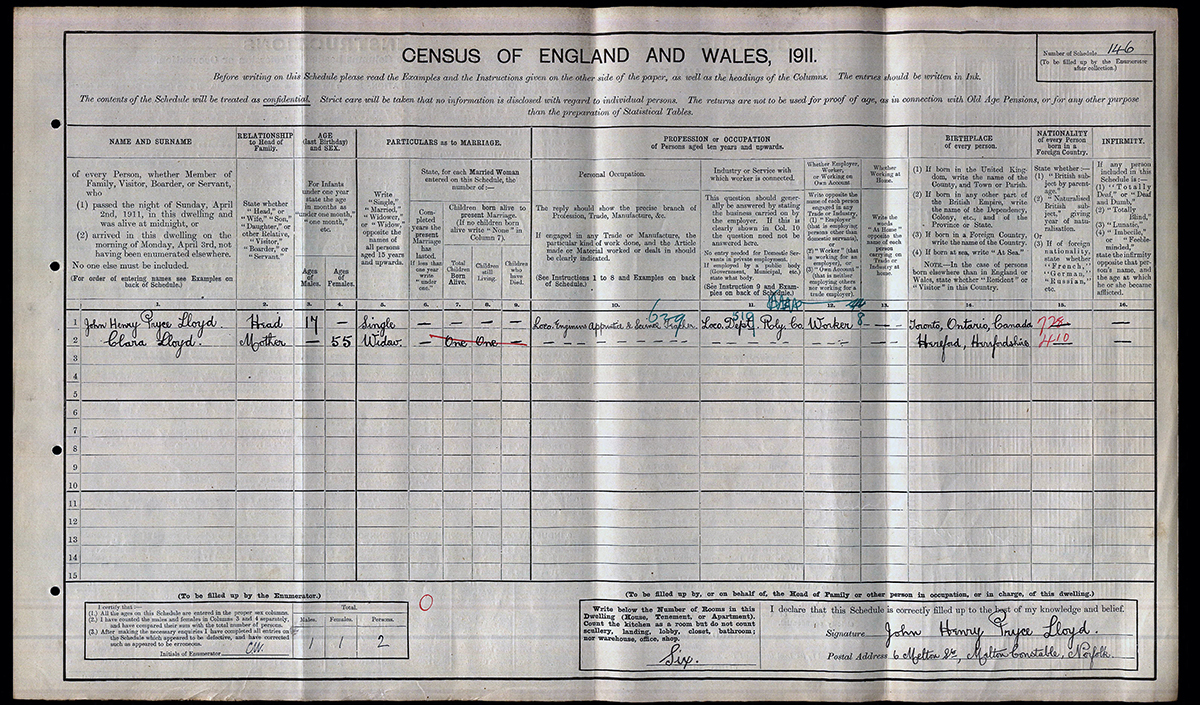 CENSUS OF ENGLAND AND WALES, 1911.
Number of Schedule 146
(To be filled up by the Enumerator
after collection.)
Before writing on this Schedule please read the Examples and the Instructions given on the other side of the paper, as well as the headings of the Columns. The entries should be written in Ink.
The contents of the Schedule will be treated as confidential. Strict care will be taken that no information is disclosed with regard to individual persons. The returns are not to be used for proof of age, as in connection with Old Age Pensions, or for any other purpose
than the preparation of Statistical Tables.
NAME AND SURNAME
of every Person, whether Member of
Family, Visitor, Boarder, or Servant,
who
(1) passed the night of Sunday, April
2nd, 1911, in this dwelling and
was alive at midnight, or
(2) arrived in this dwelling on the
morning of Monday, April 3rd, not
having been enumerated elsewhere.
No one else must be included.
(For order of entering names see Examples on
back of Schedule.)
RELATIONSHIP
to Head of
Family.
State whether
"Head," or
"Wife," "Son,"
"Daughter," or
other Relative,
"Visitor,"
"Boarder," or
"Servant."
AGE
(last Birthday)
and SEX.
For Infants
under one year
state the age
in months as
"under one month,"
"one month,"
etc.
Ages
of
Males.
Ages
of
Females.
PARTICULARS as to MARRIAGE.
Write
"Single,"
"Married,"
"Widower,"
or "Widow,"
opposite the
names of
all persons
aged 15 years
and upwards.
State, for each Married Woman
entered on this Schedule, the
number of:—
Completed
years the
present
Marriage
has
lasted.
If less than
one year
write
"under
one."
Children born alive to
present Marriage.
(If no children born
alive write "None" in
Column 7).
Total
Children
Born
Alive.
Children
still
Living.
Children
who
have
Died.
PROFESSION or OCCUPATION
of Persons aged ten years and upwards.
Personal Occupation.
The reply should show the precise branch of
Profession, Trade, Manufacture, &c.
If engaged in any Trade or Manufacture, the
particular kind of work done, and the Article
made or Material worked or dealt in should
be clearly indicated.
(See Instructions 1 to 8 and Examples on back
of Schedule.)
Industry or Service with
which worker is connected.
This question should gener-
ally be answered by stating
the business carried on by
the employer. If this is
clearly shown in Col. 10
the question need not be
answered here.
No entry needed for Domestic Ser-
vants in private employment.
If employed by a public body
(Government, Municipal, etc.)
state what body.
(See Instruction 9 and Exam-
ples on back of Schedule.)
Whether Employer,
Worker,
or Working on
Own Account.
Write opposite the
name of each person
engaged in any
Trade or Industry,
(1) "Employer"
(that is employing
persons other than
domestic servants),
or
(2) "Worker" (that
is working for an
employer), or
(3) "Own Account"
(that is neither
employing others
nor working for a
trade employer).
Whether
Working at
Home.
Write the
words
"At Home"
opposite the
name of each
person
carrying on
Trade or
Industry at
home.
BIRTHPLACE
of every person.
(1) If born in the United King-
dom, write the name of the
County, and Town or Parish.
(2) If born in any other part of
the British Empire, write
the name of the Dependency,
Colony, etc., and of the
Province or State.
(3) If born in a Foreign Country,
write the name of the Country.
(4) If born at sea, write "At Sea."
NOTE.—In the case of persons
born elsewhere than in England or
Wales, state whether "Resident" or
"Visitor" in this Country.
NATIONALITY
of every Person
born in a
Foreign Country.
State whether:—
(1) "British sub-
ject by parent-
age."
(2) "Naturalised
British sub-
ject," giving
year of natu-
ralisation.
Or
(3) If of foreign
nationality,
state whether
"French,"
"German,"
"Russian,"
etc.
INFIRMITY.
If any person
included in this
Schedule is:—
(1) "Totally
Deaf," or "Deaf
and Dumb,"
(2) "Totally
Blind,"
(3) "Lunatic,"
(4) "Imbecile,"
or "Feeble-
minded,"
state the infirmity
opposite that per-
son's name, and
the age at which
he or she became
afflicted.
1. 2. 3. 4. 5. 6. 7. 8. 9. 10. 11. 12. 13. 14. 15. 16.
639 510
1 John Henry Pryce Lloyd Head 17 — Single — — — — Loco. Engineers Apprentice Loco. Dept. Rly. Co. Worker 8 — Toronto, Ontario, Canada 728 —
2 Clara Lloyd. Mother — 55 Widow. — One One — — Hereford, Herefordshire 410 —
3
4
5
6
7
8
9
10
11
12
13
14
15
(To be filled up by the Enumerator.)
I certify that:—
(1.) All the ages on this Schedule are entered in the proper sex columns.
(2.) I have counted the males and females in Columns 3 and 4 separately,
and have compared their sum with the total number of persons.
(3.) After making the necessary enquiries I have completed all entries on
the Schedule which appeared to be defective, and have corrected
such as appeared to be erroneous.
Initials of Enumerator
Total.
Males. Females. Persons.
1 1 2
0
(To be filled up by, or on behalf of, the Head of Family or other person in occupation, or in charge, of this dwelling.)
Write below the Number of Rooms in this
Dwelling (House, Tenement, or Apartment).
Count the kitchen as a room but do not count
scullery, landing, lobby, closet, bathroom;
nor warehouse, office, shop.
Six.
I declare that this Schedule is correctly filled up to the best of my knowledge and belief.
Signature John Henry Pryce Lloyd.
Postal Address 6 Melton St, Melton Constable, Norfolk.